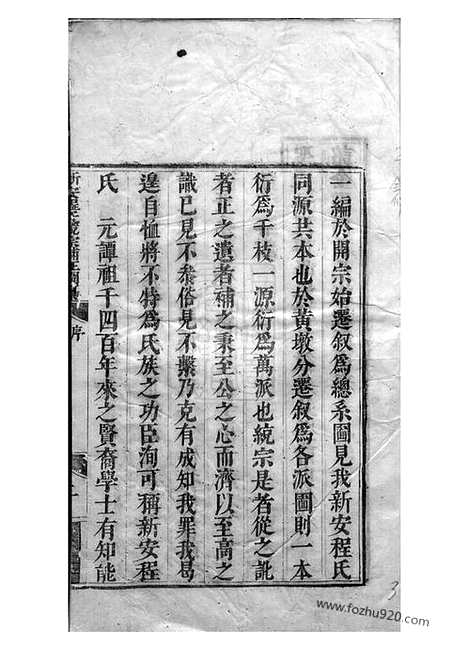 一編於開宗始遷叙爲總系圖見我新安程氏
同源共本也於黄墩分遷叙爲各派圖則一本
衍爲千枝一源衍爲萬派也統宗是者從之訛
者正之遺者補之秉至公之心而濟以至高之
識已見不忝俗見不繫乃克有成知我罪我曷
遑自恤將不特爲氏族之功臣洵可稱新安程
氏　元譚祖千四百年來之賢裔學士有知能
序
www.fozhu920.com
3